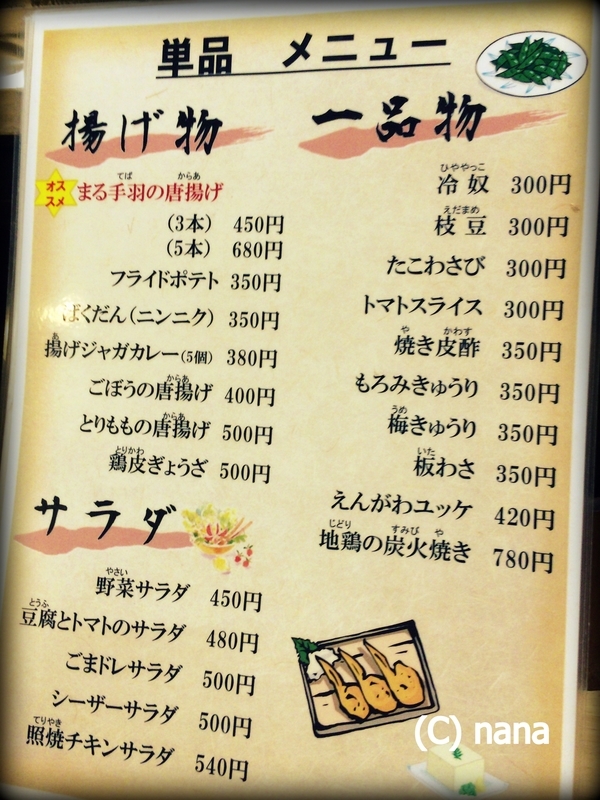 単品 メニュー
揚げ物
オススメ まる手羽の唐揚げ
(3本) 450円
(5本) 680円
フライドポテト 350円
ばくだん(ニンニク) 350円
揚げジャガカレー(5個) 380円
ごぼうの唐揚げ 400円
とりももの唐揚げ 500円
鶏皮ぎょうざ 500円
サラダ
野菜サラダ 450円
豆腐とトマトのサラダ 480円
ごまドレサラダ 500円
シーザーサラダ 500円
照焼チキンサラダ 540円
一品物
冷奴 300円
枝豆 300円
たこわさび 300円
トマトスライス 300円
焼き皮酢 350円
もろみきゅうり 350円
梅きゅうり 350円
板わさ 350円
えんがわユッケ 420円
地鶏の炭火焼き 780円
(C) nana